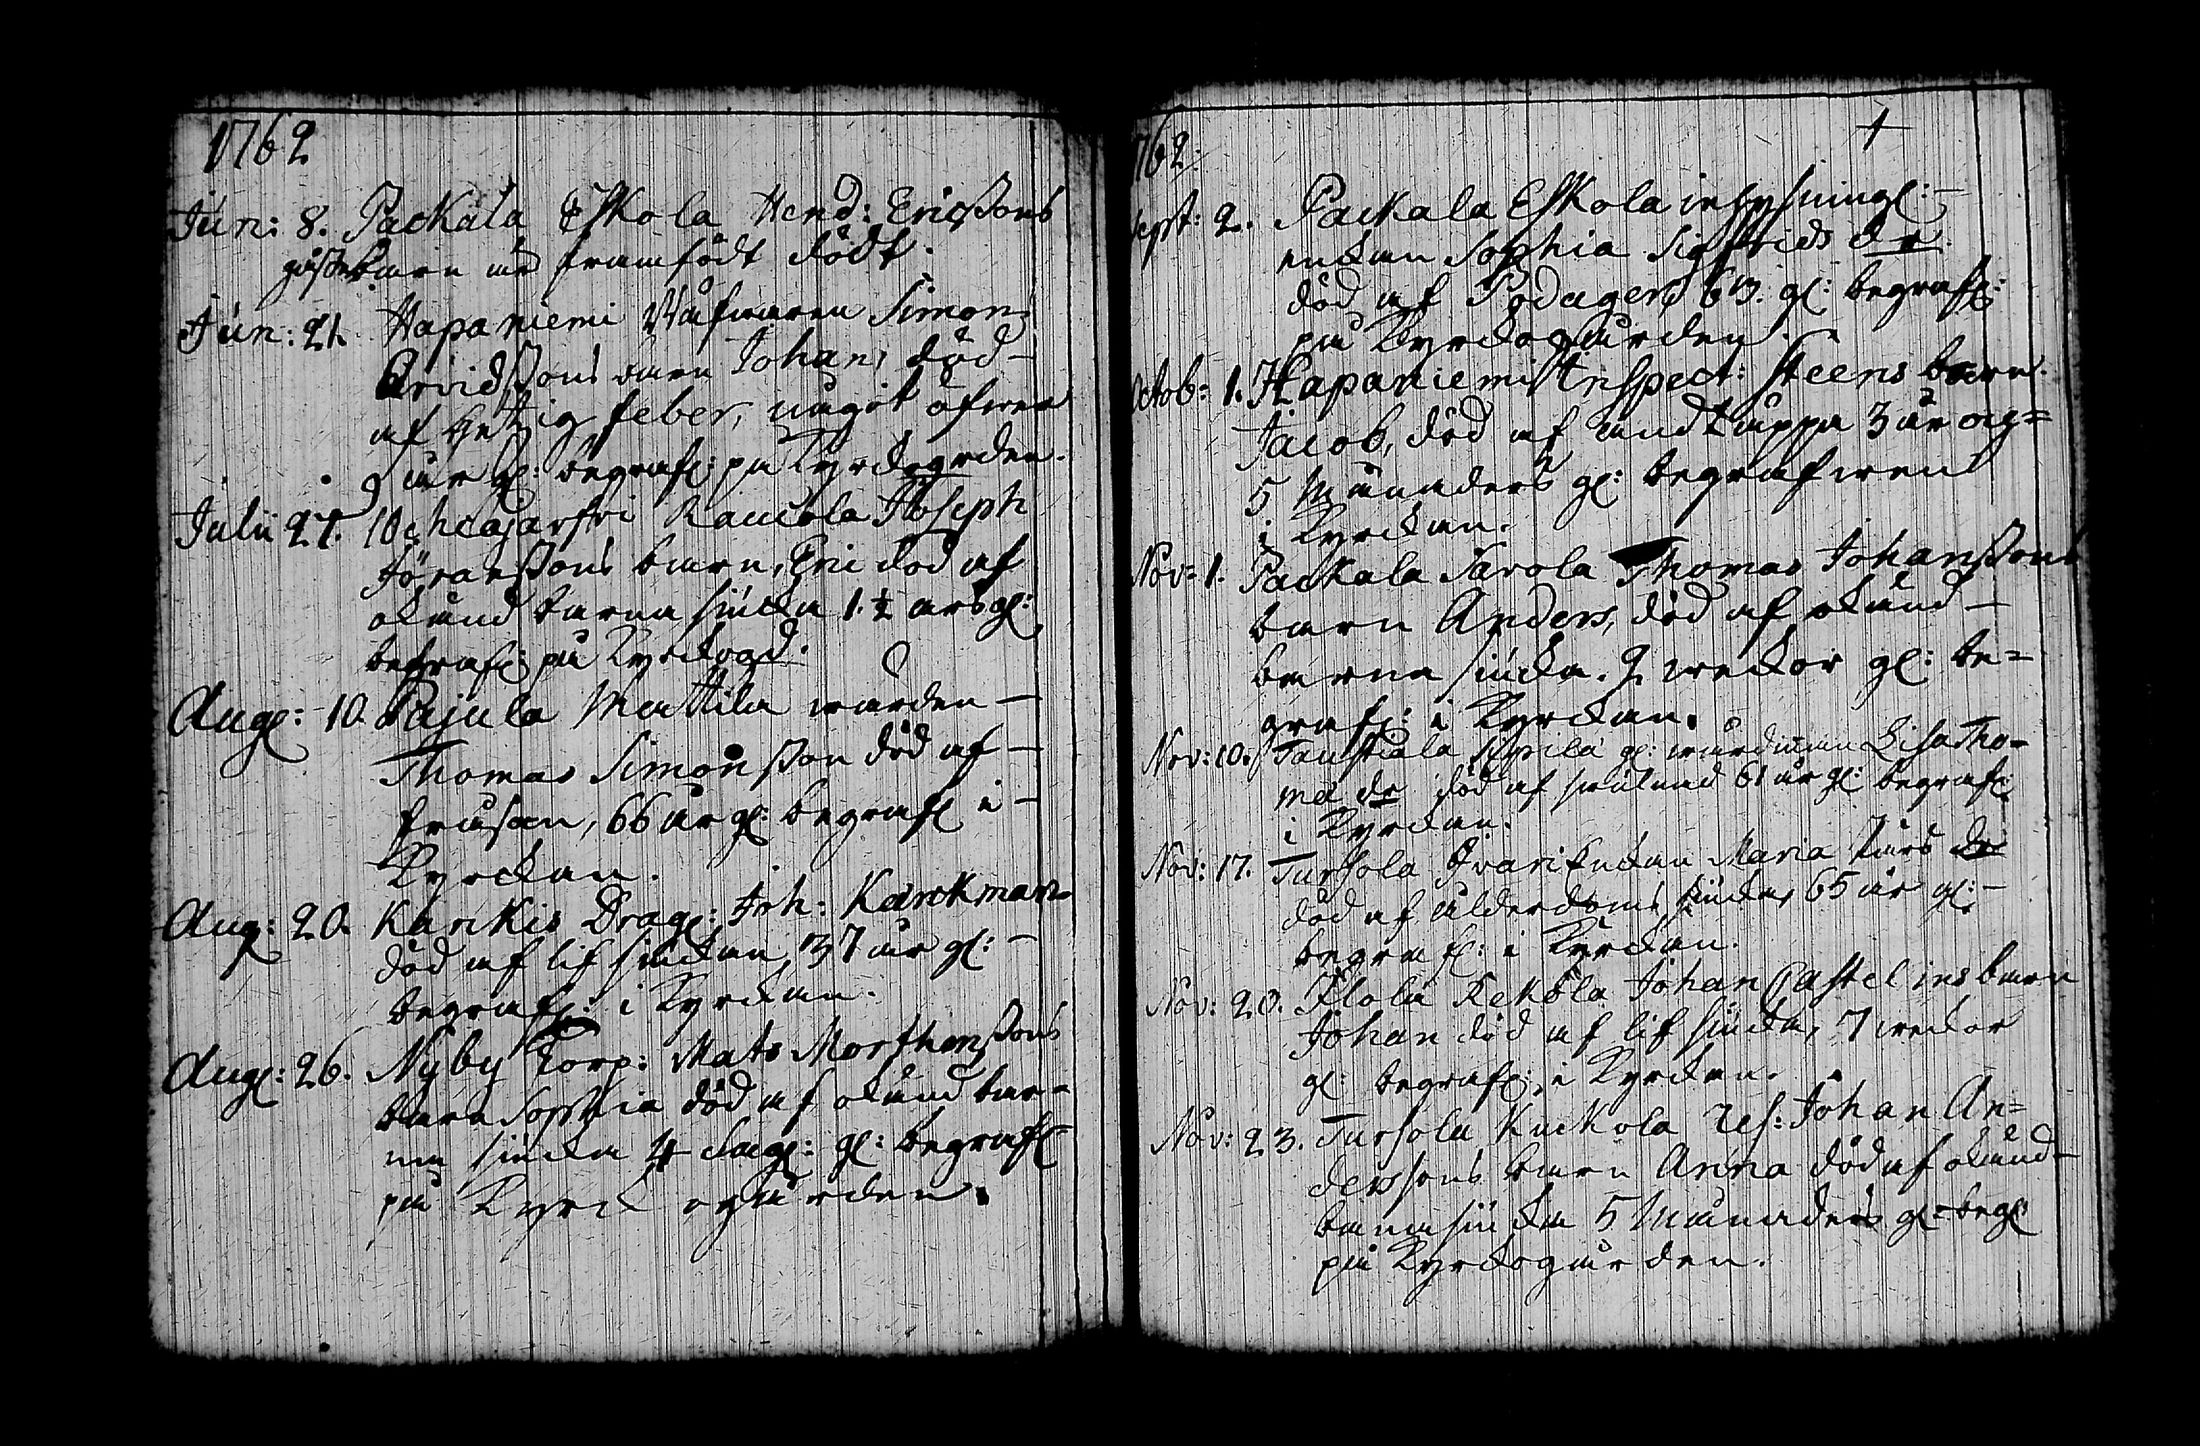 1762
Jun: 8. Packala Eskola Hend: Ericssons
barn framfödt dödt.
Jun: 21. Hapaniemi Simon
Arvidssons barn Johan, död
af hetzig feber, något öfwer
9 åhr gl: begrafs: på Kyrckogrden.
Julii 27. Rauvola Joseph
Jöranssons barn, Eric död af
okiänd barna siucka 1.½ åhrs gl:
begrafs: på Kyrckogd.
Augs: 10. Pajula Mattila wärden
Thomas Simonsson död af
frusan, 66 åhr gl: begrafs i
Kyrckan.
Aug: 20. Karkis Drag: Joh: Karckman
död af lifsiuckan, 37 åhr gl:
begrafs: i Kyrckan.
Augs: 26. Nyby Torp: Mats Morthenssons
barn Sophia död af okiänd bar=
na siucka 4 dag: gl: begrafs
på Kyrckogården.
1762:
Sept: 2. Packala Eskola inhysningl:
enckan Sophia Sigfrids dr.
död af Podager, 63. gl: begrafs:
på Kyrckogården.
Octob: 1. Hapaniemi Inspect: Steens barn
Jacob, död af 3 åhr og=
5 Månaders gl: begrafwen
i Kyrckan.
Nov: 1. Packala Sarola Thomas Johanssons
barn Anders, död af okiänd
barna siucka. 9 weckor gl: be=
grafs: i Kyrckan.
Nov: 10. Tauriala gl: wärdinnan Lisa Tho=
mæ dr död af swulnad 61 åhr gl: begrafs:
i Kyrckan.
Nov: 17. Tursola Ivari Enckan Maria Lars dr
död af ålderdoms siucka, 65 åhr gl:
begrafs: i Kyrckan.
Nov: 20. Flola Kekola Johan Castelins barn
Johan död af lifsiucka, 7 weckor
gl: begrafs: i Kyrckan.
Nov: 23. Tursola Kuckola res: Johan An=
derssons barn Anna död af okiänd
barnasiucka 5 Månaders gl: begs
på Kyrckogården.